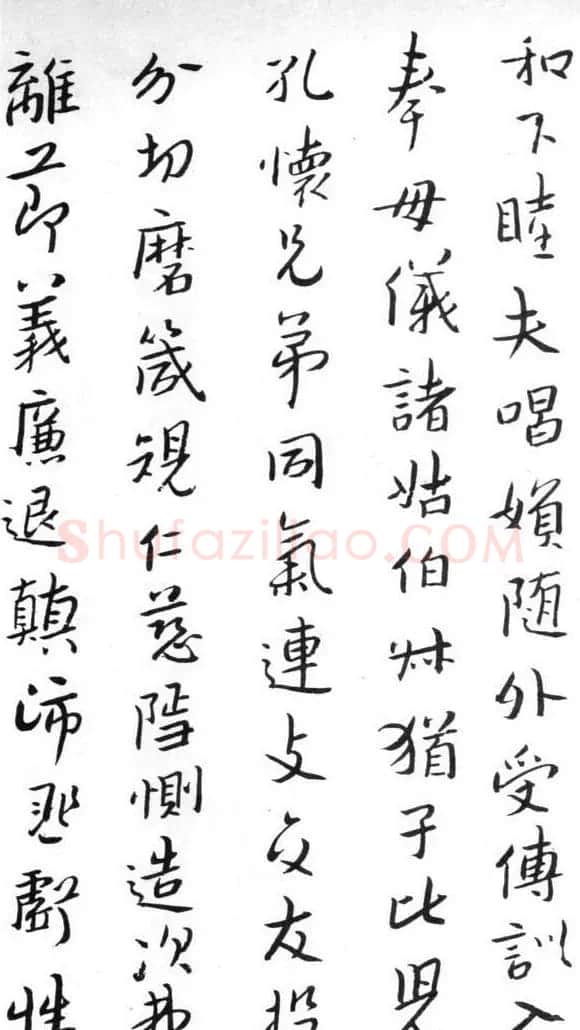 和下睦夫唱婦随外受傅訓入
奉母儀諸姑伯叔猶子比兒
孔懷兄弟同氣連支交友投
分切磨箴規仁慈隱惻造次弗
離節義廉退顛沛匪虧性
Shufaziliao.COM